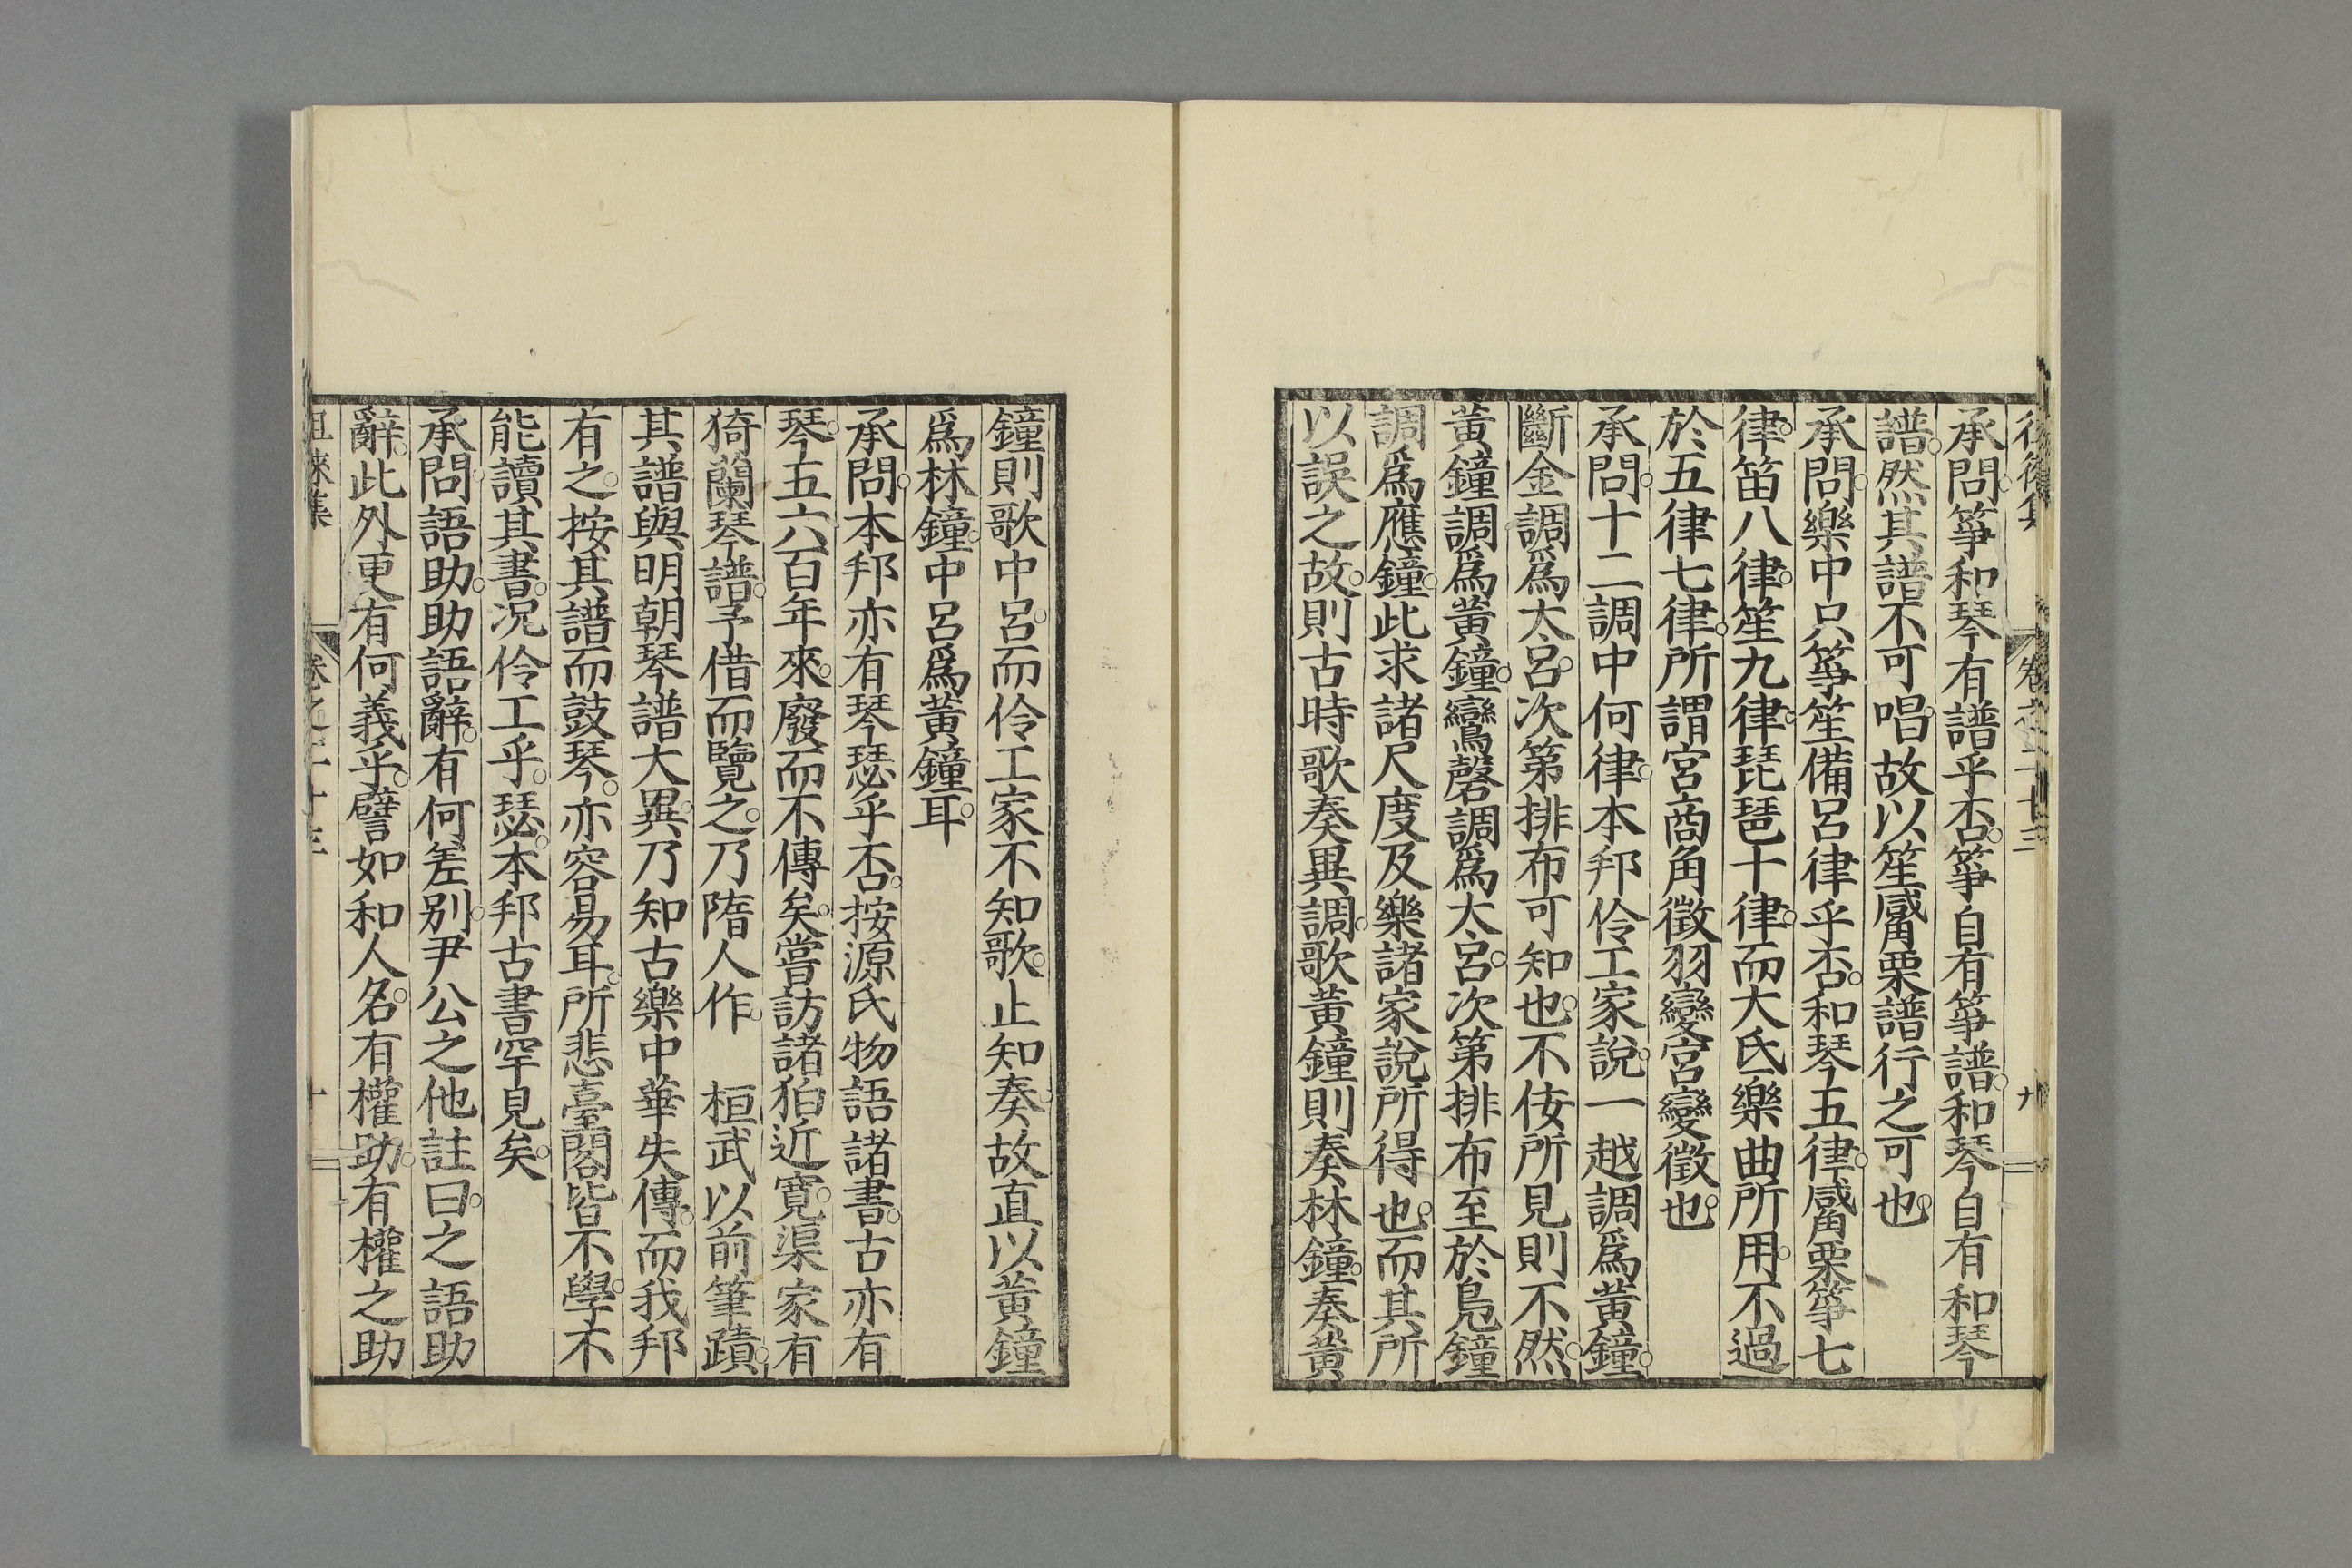 承問。箏和琴有譜乎否。箏自有箏譜。和琴自有和琴
譜。然其譜不可唱。故以笙觱栗譜行之可也。
承問。樂中只箏笙備呂律乎否。和琴五律。觱栗箏七
律。笛八律。笙九律。琵琶十律。而大氐樂曲所用。不過
於五律七律。所謂宮商角徵羽變宮變徵也。
承問。十二調中何律。本邦伶工家說。一越調爲黃鐘。
斷金調爲大呂。次第排布可知也。不佞所見則不然。
黃鐘調爲黃鐘。鸞鏡調爲大呂。次第排布至於鳧鐘
調爲應鐘。此求諸尺度及樂諸家說所得也。而其所
以誤之故。則古時歌奏異調。歌黃鐘則奏林鐘。奏黃
鐘則歌中呂。而伶工家不知歌。止知奏。故直以黃鐘
爲林鐘。中呂爲黃鐘耳。
承問。本邦亦有琴瑟乎否。按源氏物語諸書。古亦有
琴。五六百年來。廢而不傳矣。嘗訪諸狛近寬。渠家有
猗蘭琴譜。予借而覽之。乃隋人作。桓武以前筆蹟。
其譜與明朝琴譜大異。乃知古樂中華失傳。而我邦
有之。按其譜而鼓琴。亦容易耳。所悲臺閣皆不學。不
能讀其書。況伶工乎。瑟。本邦古書罕見矣。
承問。語助。助語辭。有何差別。尹公之他註曰。之語助
辭。此外更有何義乎。譬如和人名。有權助。有權之助
徂徠集 卷之二十三 十